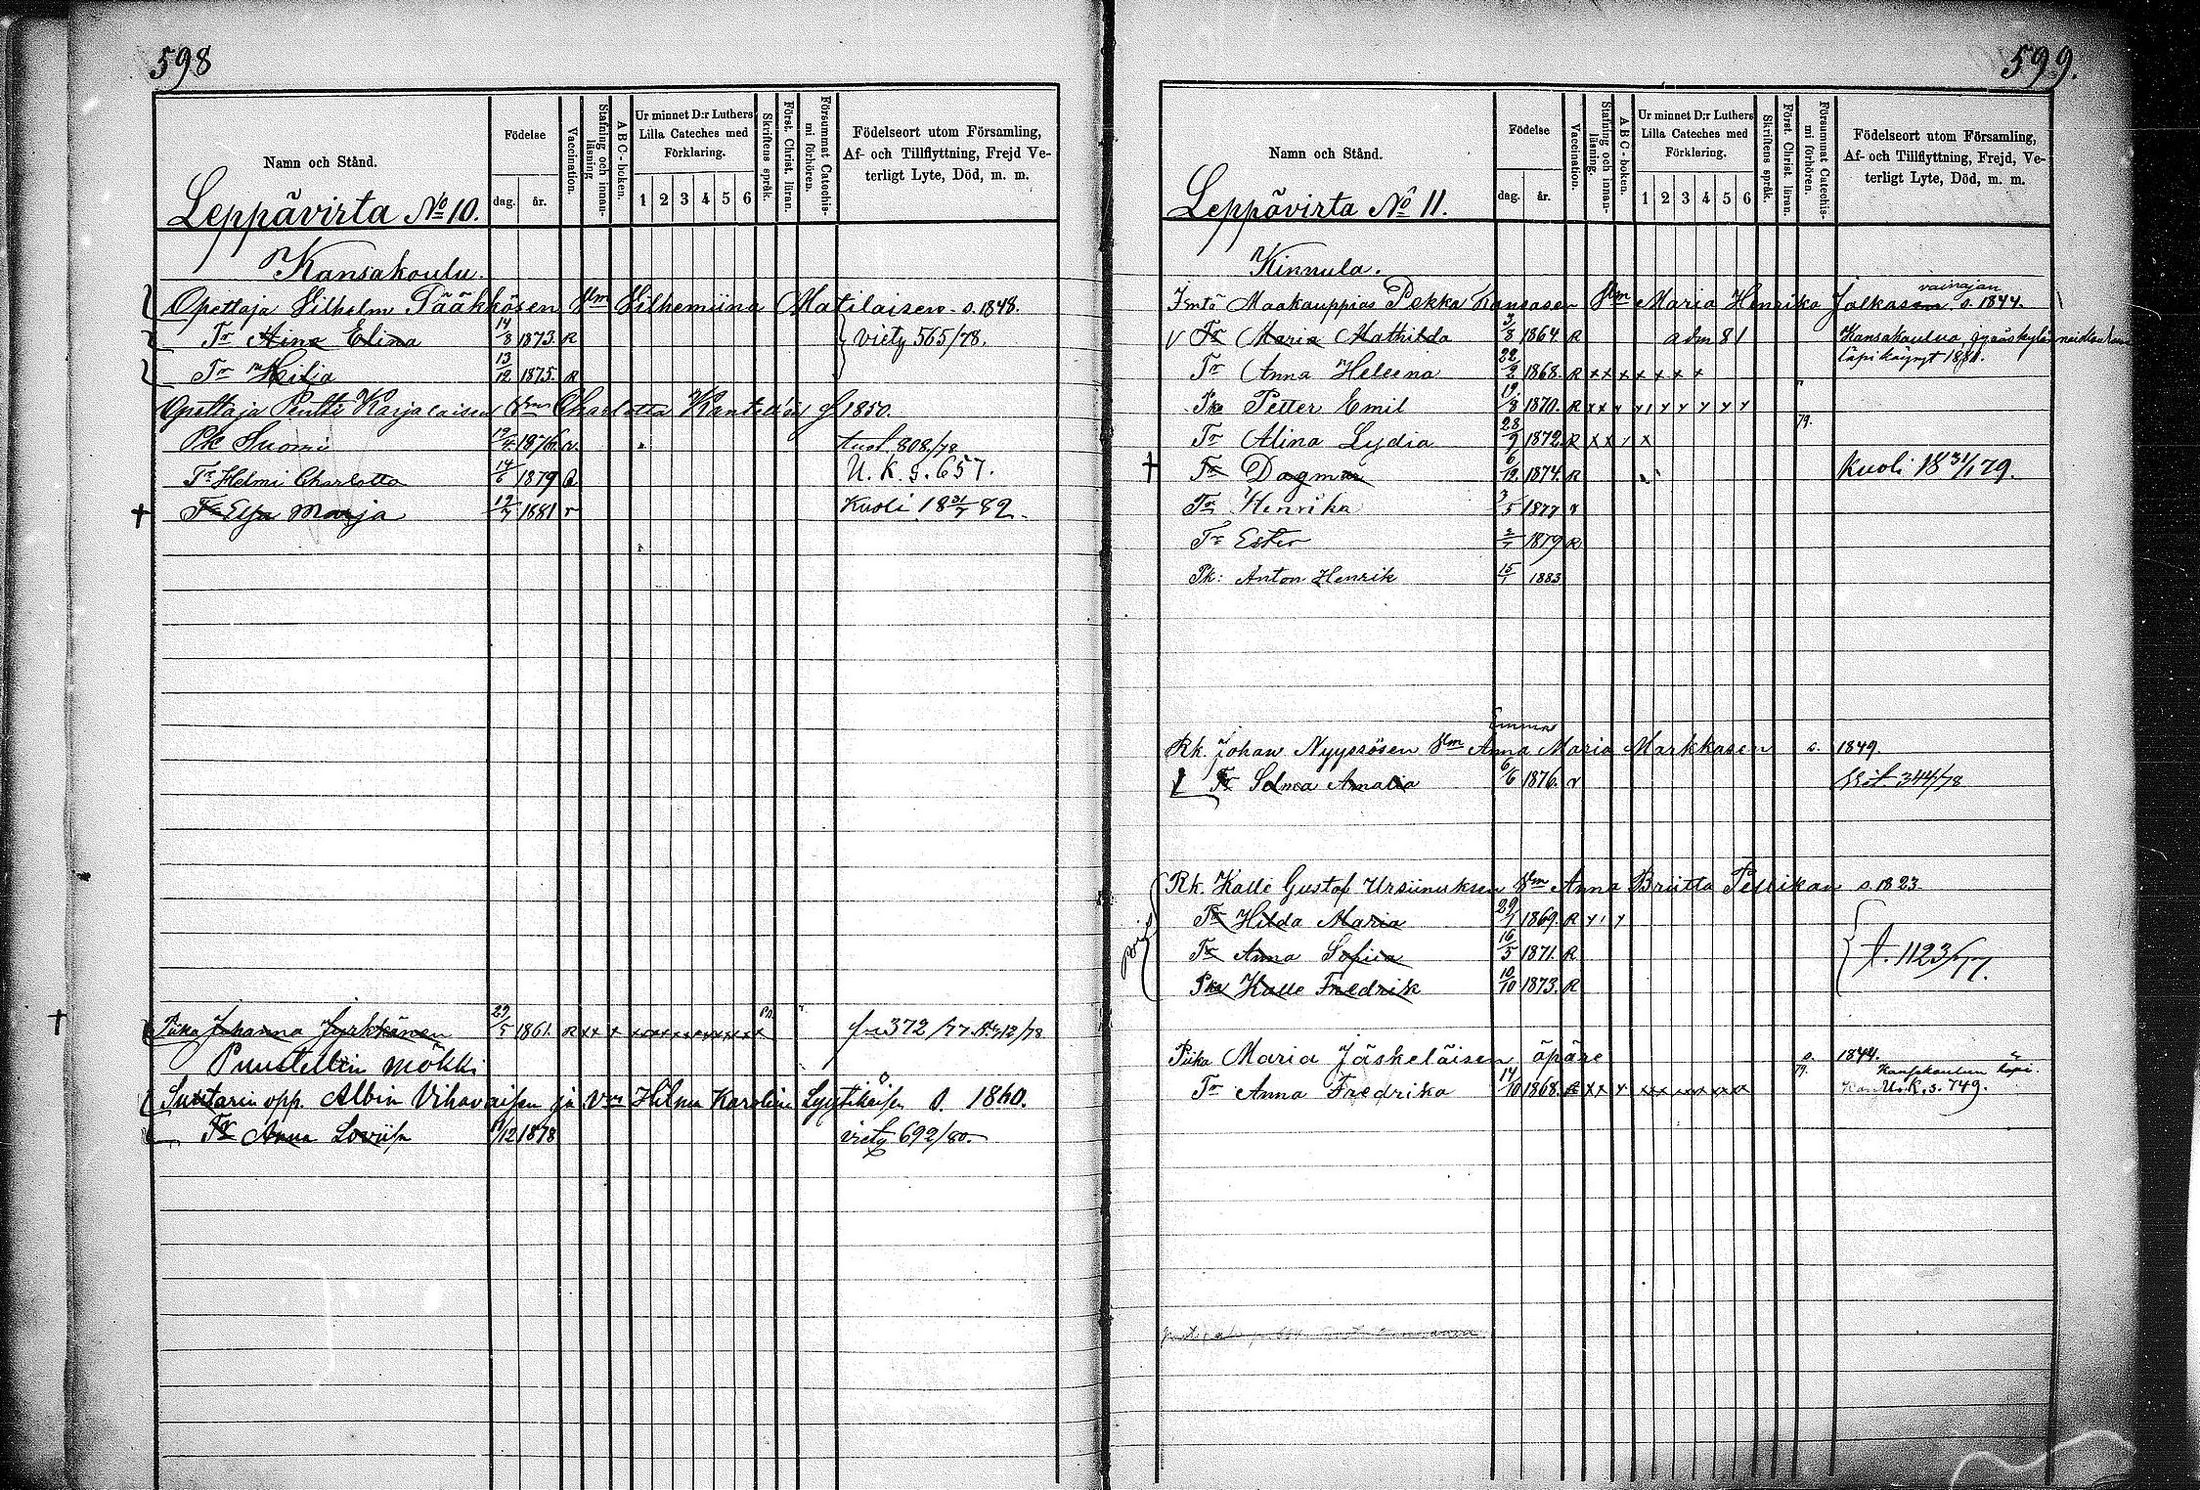 598
Namn och Stånd.
Födelse
dag.
år.
Vaccination.
Stafning och innanläsning
ABC-boken.
Ur minnet D:r Luthers Lilla Cateches med Förklaring.
1 2 3 4 5 6
Skriftens språk.
Först. Christ. läran.
Försummat Catechismi förhören.
Födelseort utom Församling,
Af- och Tillflyttning, Frejd Ve-
terligt Lyte, Död, m. m.
Leppävirta No 10.
Kansakoulu.
Opettaja Vilhelm Pääkkösen Vm Vilhemiina Matilaisen s. 1848.
Tr Aina Elina 14/8 1873. R viety 565/78.
Tr Hilja 13/12 1875. R
Opettaja Pentti Karjalaisen Vm Charlotta 1850.
Pk Suomi 19/4 1876 r. 808/78
Tr Helmi Charlotta 14/6 1879 R U.K.s. 657.
Tr Elsa Marja 1881 r Kuoli 18 31/7 82.
Piika Johanna Jyrkkänen 29/5 1861. R x x x 372/77. 712/78
Puustellin mökki
Suutarin opp. Albin Vihavaisen ja Vm Hilma Karolin Lyytikäisen s. 1860.
Tr Anna Loviisa /12 1878 viety 692/80.
599.
Namn och Stånd.
Födelse
dag.
år.
Vaccination.
Stafning och innanläsning.
ABC-boken.
Ur minnet D:r Luthers Lilla Cateches med Förklaring.
1 2 3 4 5 6
Skriftens språk.
Först. Christ. läran.
Försummat Catechismi förhören.
Födelseort utom Församling,
Af- och Tillflyttning, Frejd, Ve-
terligt Lyte, Död, m. m.
Leppävirta No 11.
Kinnula.
vainajan
Maakauppias Pekka Kansasen Vm Maria Henrika Jalkasen s. 1844.
V Tr Maria Mathilda 3/8 1864 R adm 81 Kansakoulua Jyväskylän
läpikäynyt 1881.
Tr Anna Heleena 22/2 1868. R x x x x x x x
Pk Petter Emil 19/8 1870. R x x
79.
Tr Alina Lydia 28/9 1872. R x x x
Tr Dagmar 6/12 1874. R Kuoli 18 31/1 79.
Tr Henrika 3/5 1877 r
Tr Ester 1879 R
Pk: Anton Henrik 15/1 1883
Emma
Rk. Johan Nyyssösen Vm Anna Maria Markkasen s. 1849.
Tr Selma Amalia 6/6 1876. r 344/78
Rk. Kalle Gustaf Ursiinuksen Vm Anna Briitta Pellikan s. 1823.
Tr Hilda Maria 29/1 1869. R
Tr Anna Sofiia 16/5 1871. R 1123/77.
Pk Kalle Fredrik 10/10 1873. R
Piika Maria Jäskeläisen äpäre s. 1844.
79.
Tr Anna Fredrika 14/10 1868. R x x U.K.s. 749.